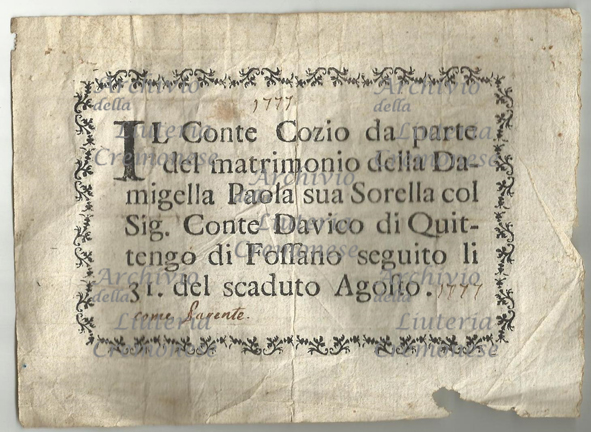 1777
IL Conte Cozio da parte
del matrimonio della Da-
migella Paola sua Sorella col
Sig. Conte Davico di Quit-
tengo di Foſſano seguito li
31. del scaduto Agoſto. 1777
come Parente.
Archivio
della
Liuteria
Cremonese
Archivio
della
Liuteria
Cremonese
Archivio
della
Liuteria
Cremonese
Archivio
della
Liuteria
Cremonese
Archivio
della
Liuteria
Cremonese